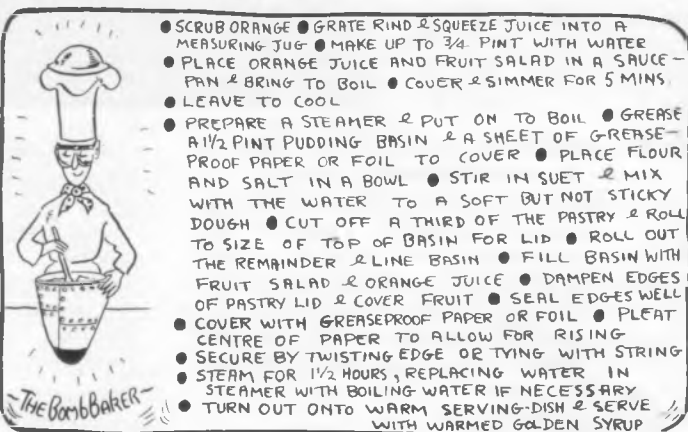 ● SCRUB ORANGE ● GRATE RIND & SQUEEZE JUICE INTO A
MEASURING JUG ● MAKE UP TO 3/4 PINT WITH WATER
● PLACE ORANGE JUICE AND FRUIT SALAD IN A SAUCE-
PAN & BRING TO BOIL ● COVER & SIMMER FOR 5 MINS
● LEAVE TO COOL
● PREPARE A STEAMER & PUT ON TO BOIL ● GREASE
A 1 1/2 PINT PUDDING BASIN & A SHEET OF GREASE-
PROOF PAPER OR FOIL TO COVER ● PLACE FLOUR
AND SALT IN A BOWL ● STIR IN SUET & MIX
WITH THE WATER TO A SOFT BUT NOT STICKY
DOUGH ● CUT OFF A THIRD OF THE PASTRY & ROLL
TO SIZE OF TOP OF BASIN FOR LID ● ROLL OUT
THE REMAINDER & LINE BASIN ● FILL BASIN WITH
FRUIT SALAD & ORANGE JUICE ● DAMPEN EDGES
OF PASTRY LID & COVER FRUIT ● SEAL EDGES WELL
● COVER WITH GREASEPROOF PAPER OR FOIL ● PLEAT
CENTRE OF PAPER TO ALLOW FOR RISING
● SECURE BY TWISTING EDGE OR TYING WITH STRING
● STEAM FOR 1 1/2 HOURS, REPLACING WATER IN
STEAMER WITH BOILING WATER IF NECESSARY
● TURN OUT ONTO WARM SERVING-DISH & SERVE
WITH WARMED GOLDEN SYRUP
~THE BombBAKER~